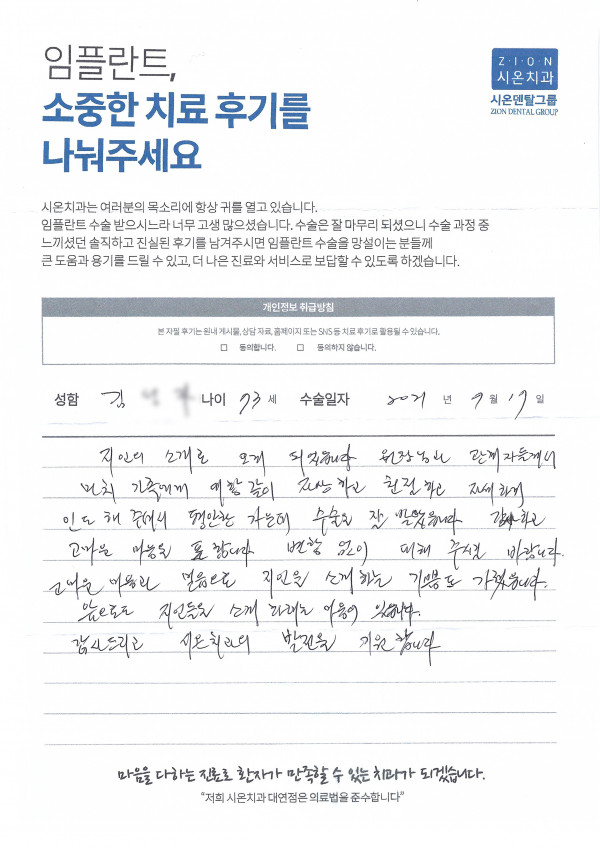 임플란트,
소중한 치료 후기를
나눠주세요
Z·I·O·N
시온치과
시온덴탈그룹
ZION DENTAL GROUP
시온치과는 여러분의 목소리에 항상 귀를 열고 있습니다.
임플란트 수술 받으시느라 너무 고생 많으셨습니다. 수술은 잘 마무리 되셨으니 수술 과정 중
느끼셨던 솔직하고 진실된 후기를 남겨주시면 임플란트 수술을 망설이는 분들께
큰 도움과 용기를 드릴 수 있고, 더 나은 진료와 서비스로 보답할 수 있도록 하겠습니다.
개인정보 취급방침
본 자필 후기는 원내 게시물, 상담 자료, 홈페이지 또는 SNS 등 치료 후기로 활용될 수 있습니다.
☐ 동의합니다. ☐ 동의하지 않습니다.
성함 김 나이 73 세 수술일자 2021 년 9 월 17 일
지인의 소개로 오게 되었읍니다 원장님과 관계자들께서
마치 가족에게 대함 같이 자상하고 친절하고 자세하게
인도해 주셔서 평안한 가운데 수술을 잘 받았읍니다 감사하고
고마운 마음을 표합니다 변함 없이 대해 주시길 바랍니다.
고마운 마음과 믿음으로 지인을 소개하는 기쁨도 가졌읍니다.
앞으로도 지인들을 소개 하려는 마음이 있읍니다.
감사드리고 시온치과의 발전을 기원합니다
마음을 다하는 진료로 환자가 만족할 수 있는 치과가 되겠습니다.
"저희 시온치과 대연점은 의료법을 준수합니다"